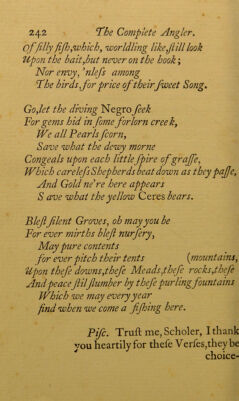 242 The Complete Angler.
Of ſilly fiſh,which, worldling like,ſtill look
Upon the bait,but never on the hook;
Nor envy, 'nleſs among
The birds, for price of their ſweet Song.
Go,let the diving Negro ſeek
For gems hid in ſome forlorn creek,
We all Pearls ſcorn,
Save what the dewy morne
Congeals upon each little ſpire of graſſe,
Which careleſs Shepherds beat down as they paſſe,
And Gold ne're here appears
S ave what the yellow Ceres bears.
Bleſt ſilent Groves, oh may you be
For ever mirths bleſt nurſery,
May pure contents
for ever pitch their tents (mountains,
Upon theſe downs,theſe Meads,theſe rocks,theſe
And peace ſtil ſlumber by theſe purling fountains
Which we may every year
find when we come a fiſhing here.
Piſc. Truſt me, Scholer, I thank
you heartily for theſe Verſes,they be
choice-